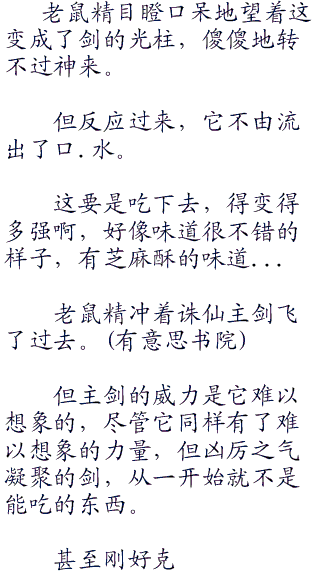 老鼠精目瞪口呆地望着这
变成了剑的光柱，傻傻地转
不过神来。
但反应过来，它不由流
出了口.水。
这要是吃下去，得变得
多强啊，好像味道很不错的
样子，有芝麻酥的味道...
老鼠精冲着诛仙主剑飞
了过去。(有意思书院)
但主剑的威力是它难以
想象的，尽管它同样有了难
以想象的力量，但凶厉之气
凝聚的剑，从一开始就不是
能吃的东西。
甚至刚好克